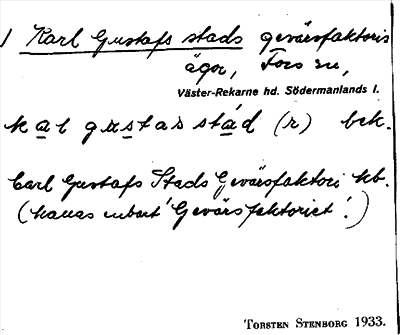 1 Karl Gustafs stads gevärsfaktoris
ägor, Fors sn,
Väster-Rekarne hd. Södermanlands l.
kal gustas stad (r) bek.
Carl Gustafs Stads Gevärsfaktori kb.
(kallas enbart 'Gevärsfaktoriet'.)
TORSTEN STENBORG 1933.